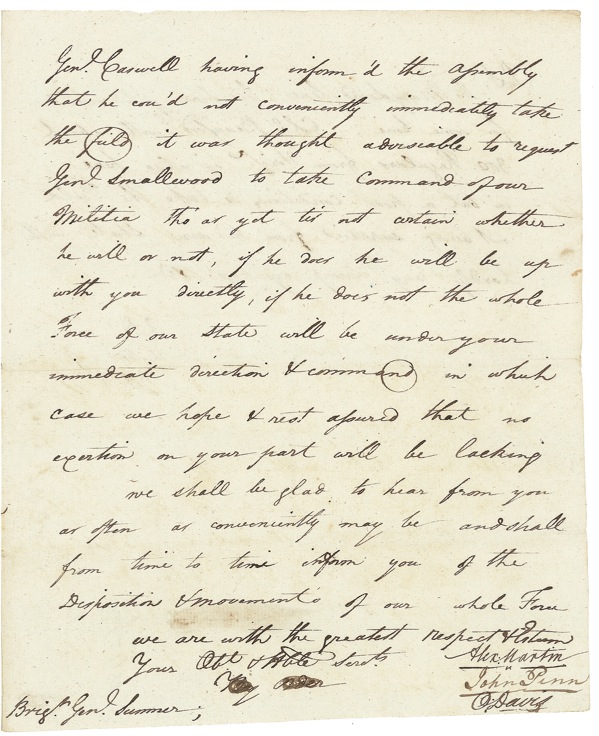 Genl. Caswell having inform'd the Assembly
that he cou'd not conveniently immediately take
the field it was thought adviseable to request
Genl. Smallwood to take Command of our
Militia tho' as yet tis not certain whether
he will or not, if he does he will be up
with you directly, if he does not the whole
Force of our State will be under your
immediate direction & command in which
case we hope & rest assured that no
exertion on your part will be lacking
we shall be glad to hear from you
as often as conveniently may be and shall
from time to time inform you of the
Disposition & movements of our whole Force
we are with the greatest respect & Esteem
Your Obt. & Hble Servts
Alex. Martin
John Penn
O Davis
Brigr. Genl. Sumner;